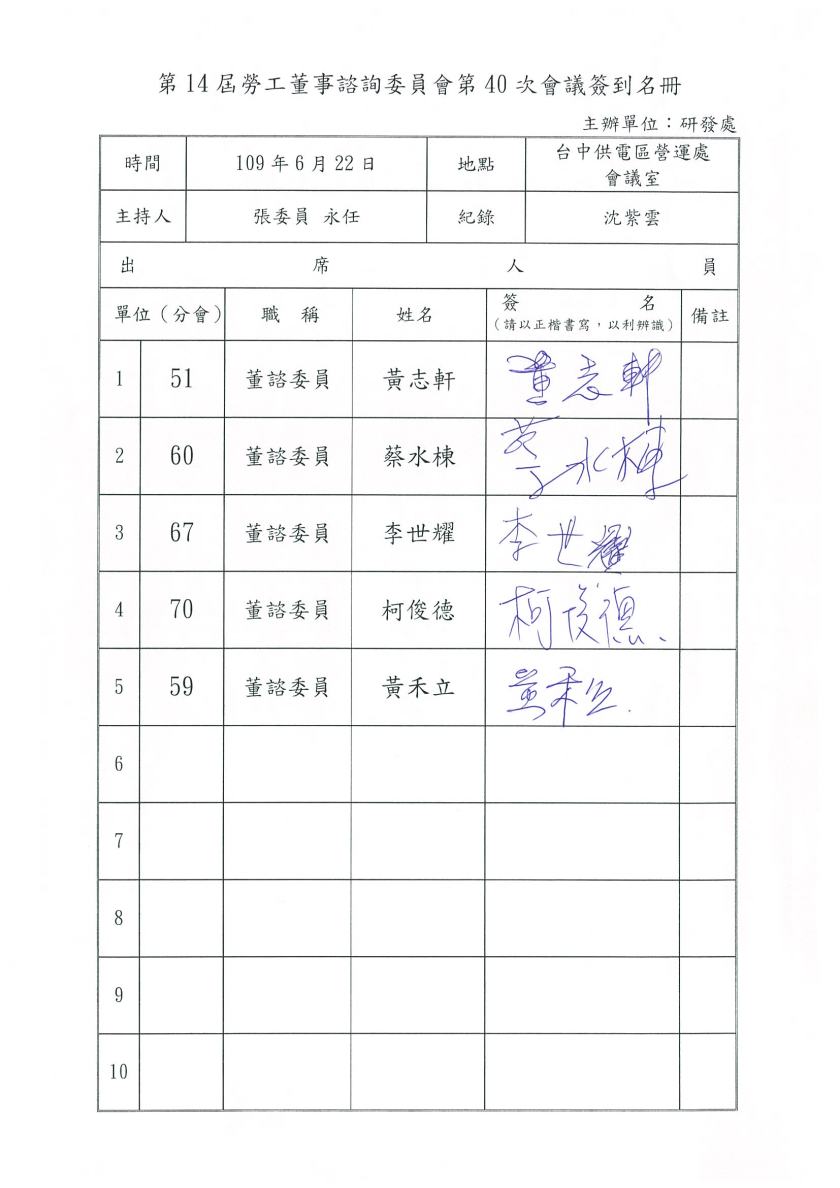 第14屆勞工董事諮詢委員會第40次會議簽到名冊
主辦單位：研發處
時間 109年6月22日 地點 台中供電區營運處
會議室
主持人 張委員 永任 紀錄 沈紫雲
出 席 人 員
單位（分會） 職 稱 姓名 簽 名 備註
（請以正楷書寫，以利辨識）
1 51 董諮委員 黃志軒 黃志軒
2 60 董諮委員 蔡水棟 蔡水棟
3 67 董諮委員 李世耀 李世耀
4 70 董諮委員 柯俊德 柯俊德
5 59 董諮委員 黃禾立 黃禾立
6
7
8
9
10